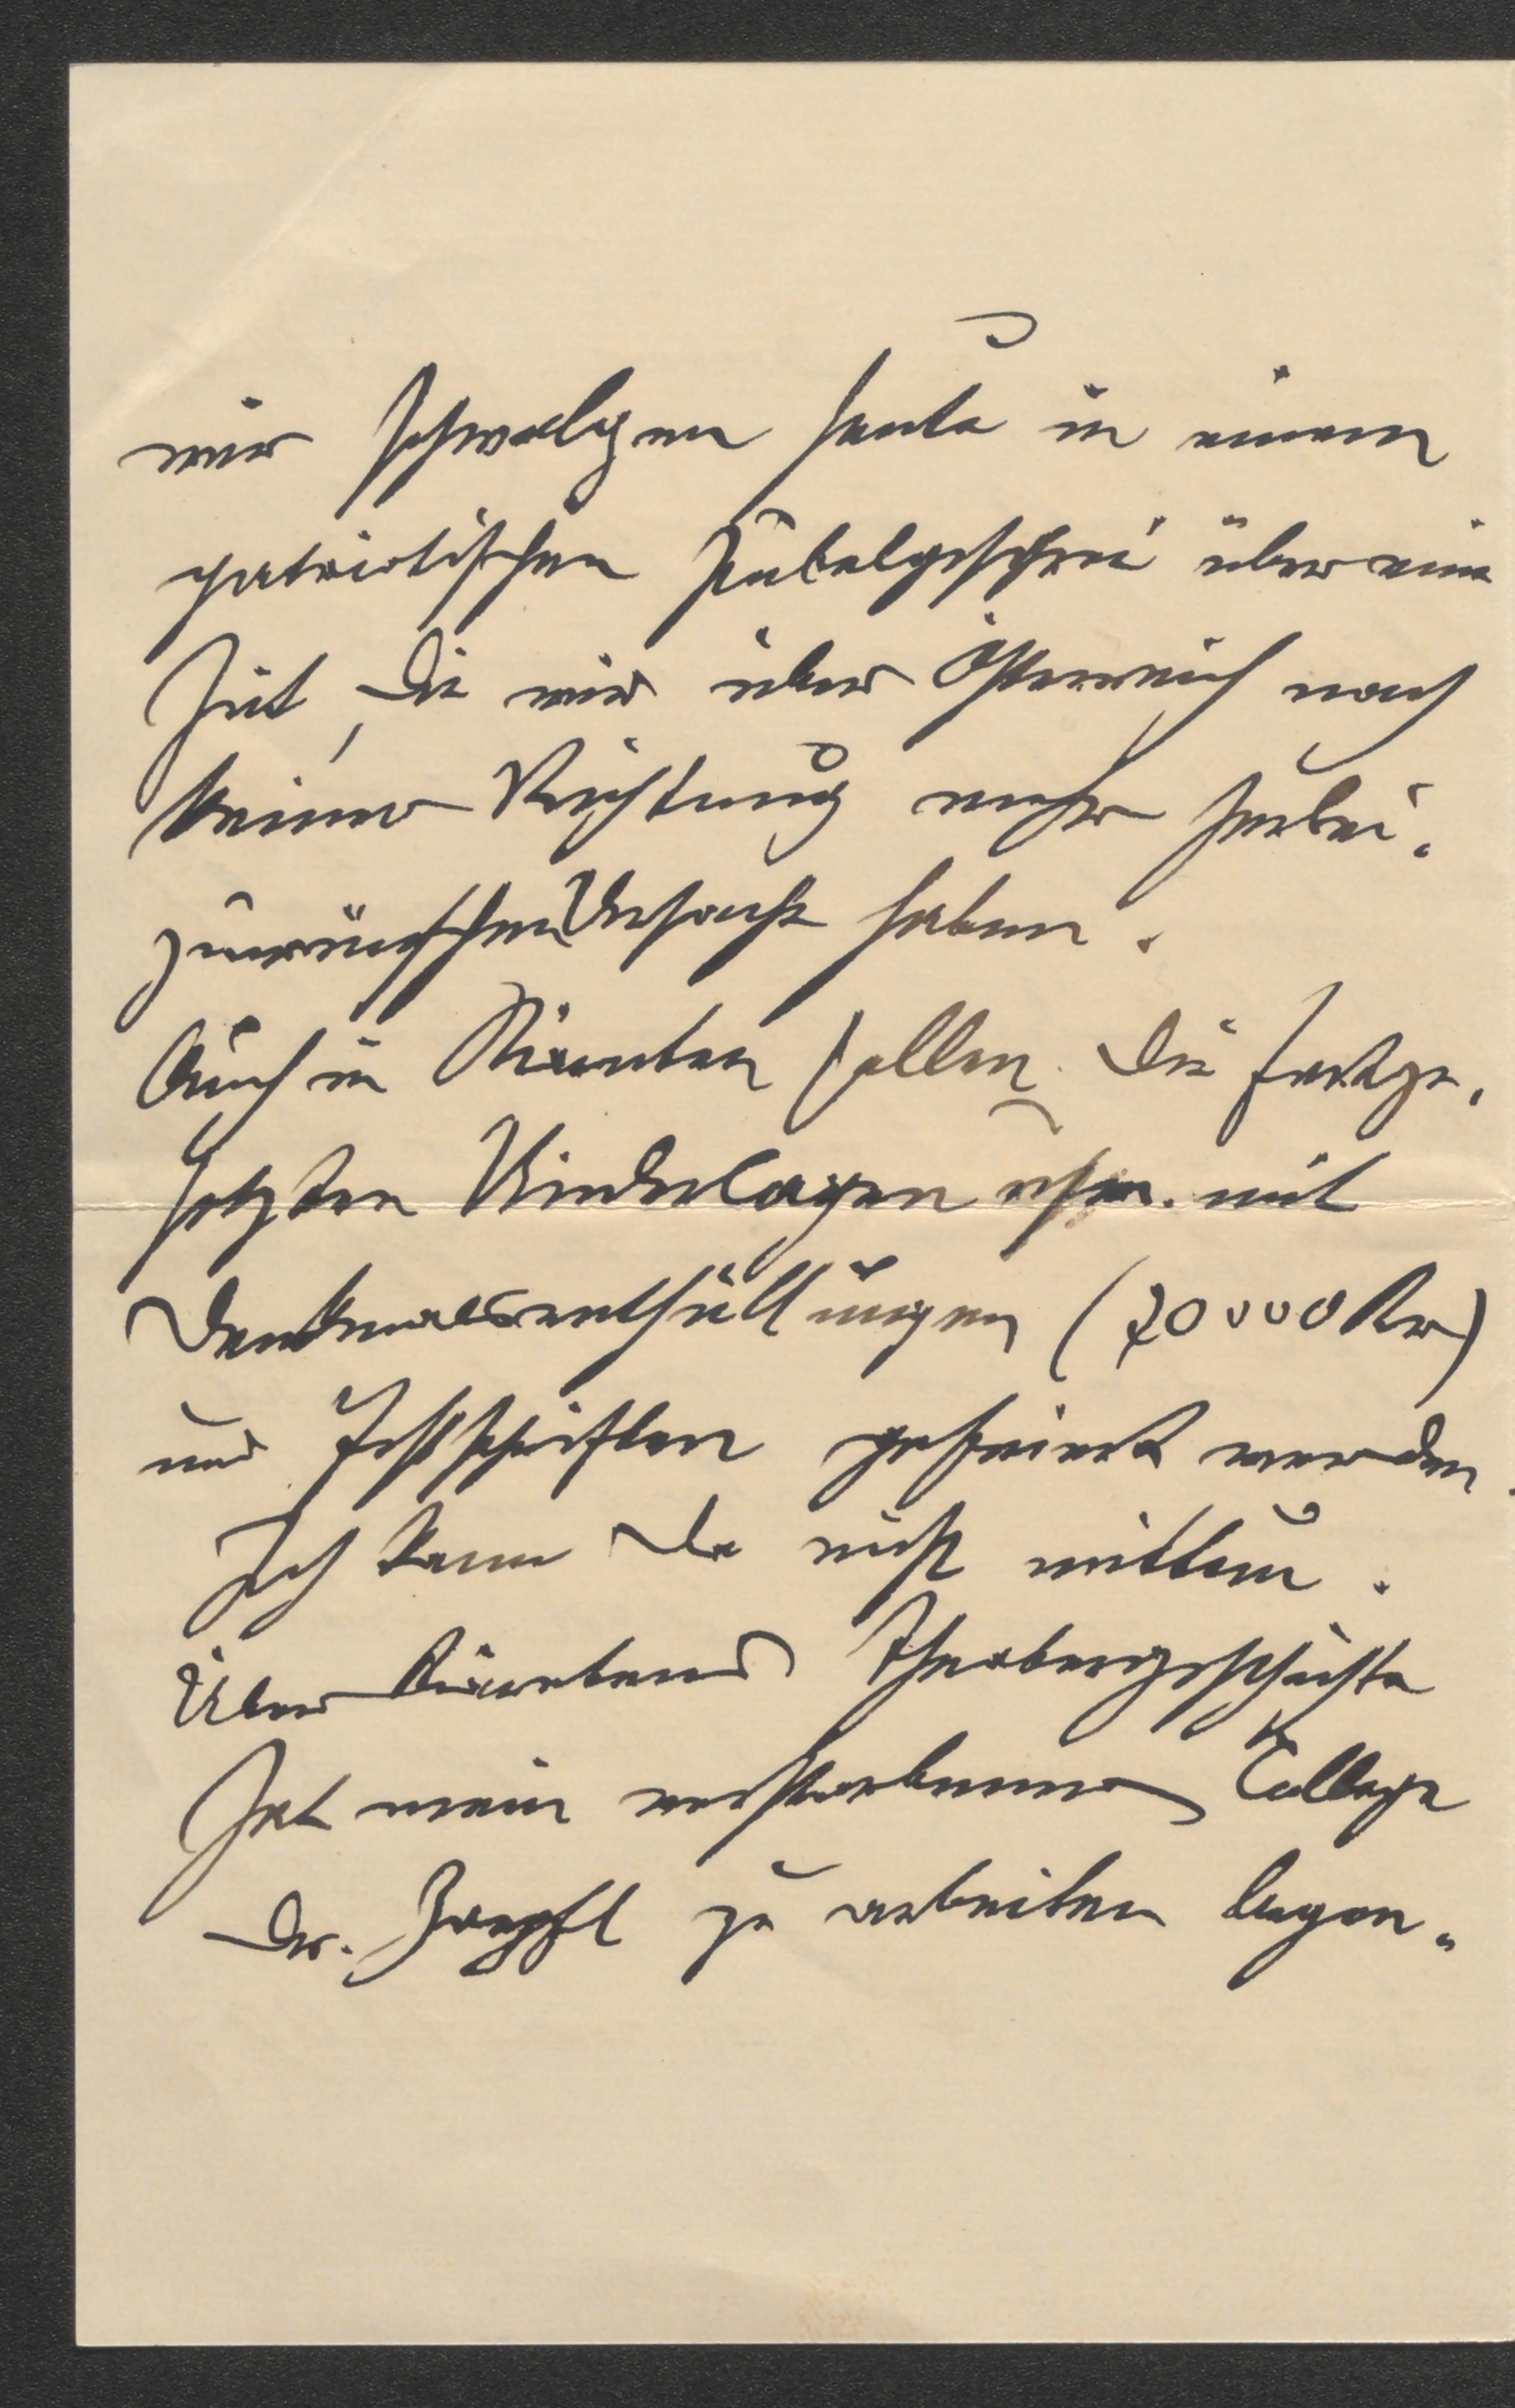 wir schwelgen heute in einem
patriotischen Jubelgeschrei über eine
Zeit, die wir über Österreich nach
keiner Richtung mehr herbei-
zuwünschen Ursache haben.
Auch in Kärnten sollen die fortge-
setzten Niederlagen etc. mit
Denkmalsenthüllungen (70000 Kr)
und Festschriften gefeiert werden.
Ich kann da nicht mittun.
Über Kärntens Theatergeschichte
hat mein verstorbener College
Dr. zu arbeiten begon-